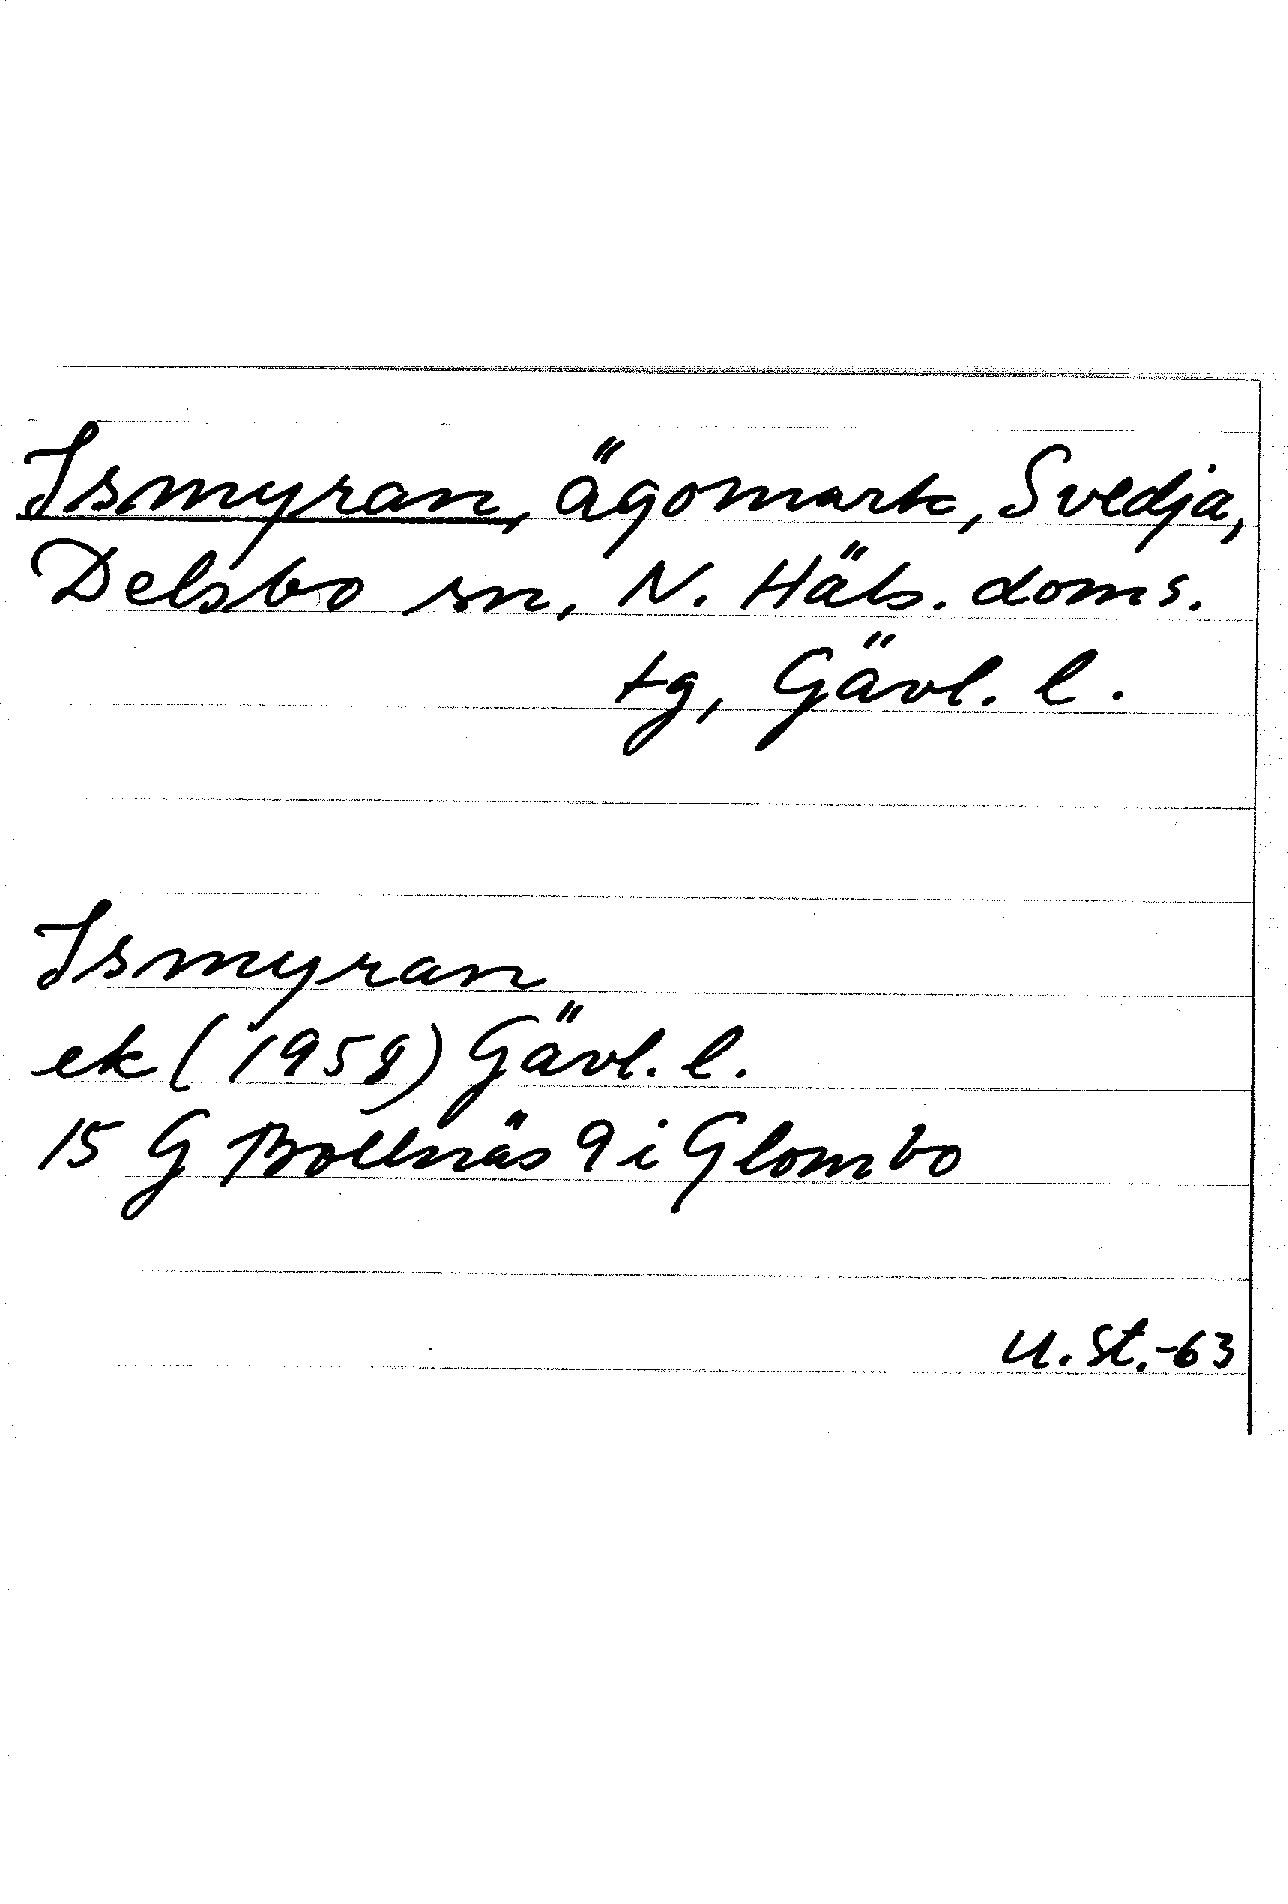 Ismyran, ägomark, Svedja,
Delsbo sn, N. Häls. doms.
tg, Gävl. l.
Ismyran
ek (1958) Gävl. l.
15 G Bollnäs 9 i Glombo
U. St.-63